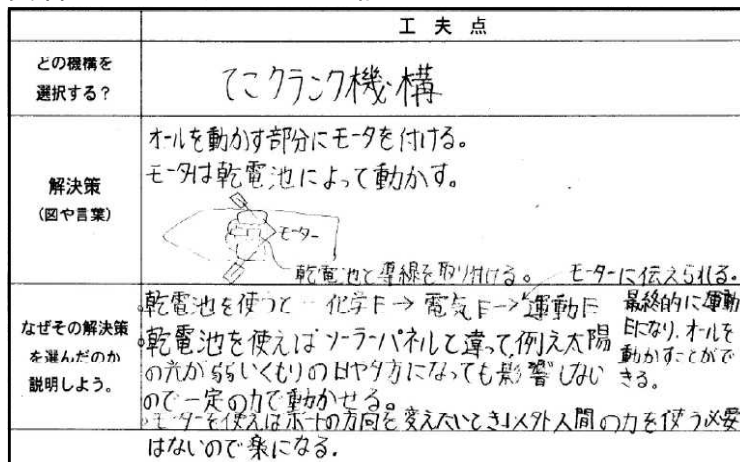 工夫点
どの機構を
選択する?
てこクランク機構
解決策
(図や言葉)
オールを動かす部分にモータを付ける。
モータは乾電池によって動かす。
モーター
乾電池と導線を取り付ける。
モーターに伝えられる。
なぜその解決策
を選んだのか
説明しよう。
・乾電池を使うと… 化学E→電気E→運動E
最終的に運動
Eになり、オールを
動かすことがで
きる。
・乾電池を使えばソーラーパネルと違って、例え太陽
の光が弱いくもりの日や夕方になっても影響しない
ので一定の力で動かせる。
・モーターを使えばボートの方向を変えたいとき以外人間の力を使う必要
はないので楽になる.